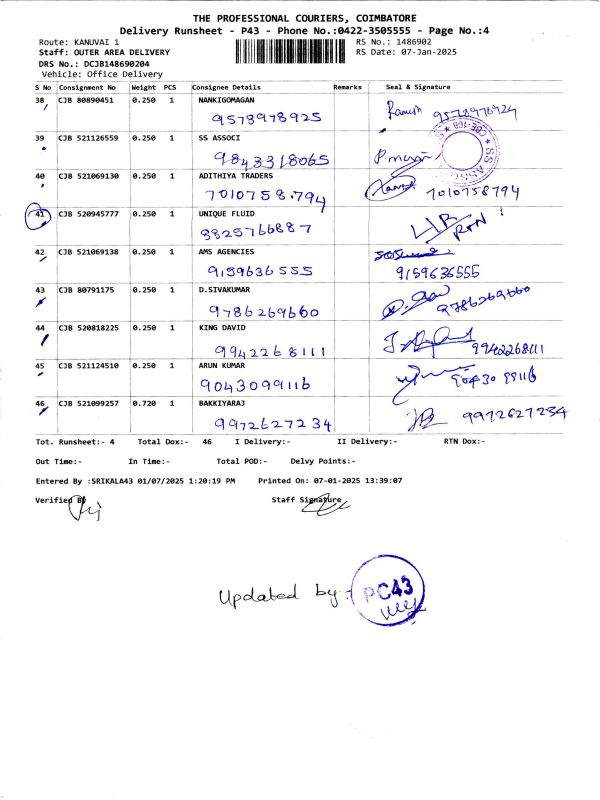 THE PROFESSIONAL COURIERS, COIMBATORE
Delivery Runsheet - P43 - Phone No.:0422-3505555 - Page No.:4
Route: KANUVAI 1 RS No.: 1486902
Staff: OUTER AREA DELIVERY RS Date: 07-Jan-2025
DRS No.: DCJB148690204
Vehicle: Office Delivery
S No Consignment No Weight PCS Consignee Details Remarks Seal & Signature
38 CJB 80890451 0.250 1 NANKIGOMAGAN
9578978925 Ramesh 9578978924
39 CJB 521126559 0.250 1 SS ASSOCI
9843318065
SS ASSO
40 CJB 521069130 0.250 1 ADITHIYA TRADERS
7010758794 7010758794
41 CJB 520945777 0.250 1 UNIQUE FLUID
8825766887 RTN
42 CJB 521069138 0.250 1 AMS AGENCIES
9159636555 9159636555
43 CJB 80791175 0.250 1 D.SIVAKUMAR
9786269660 9786269660
44 CJB 520818225 0.250 1 KING DAVID
9942268111 9942268111
45 CJB 521124510 0.250 1 ARUN KUMAR
9043099116 90430 99116
46 CJB 521099257 0.720 1 BAKKIYARAJ
9972627234 9972627234
Tot. Runsheet:- 4 Total Dox:- 46 I Delivery:- II Delivery:- RTN Dox:-
Out Time:- In Time:- Total POD:- Delvy Points:-
Entered By :SRIKALA43 01/07/2025 1:20:19 PM Printed On: 07-01-2025 13:39:07
Verified By Staff Signature
Updated by:- PC43